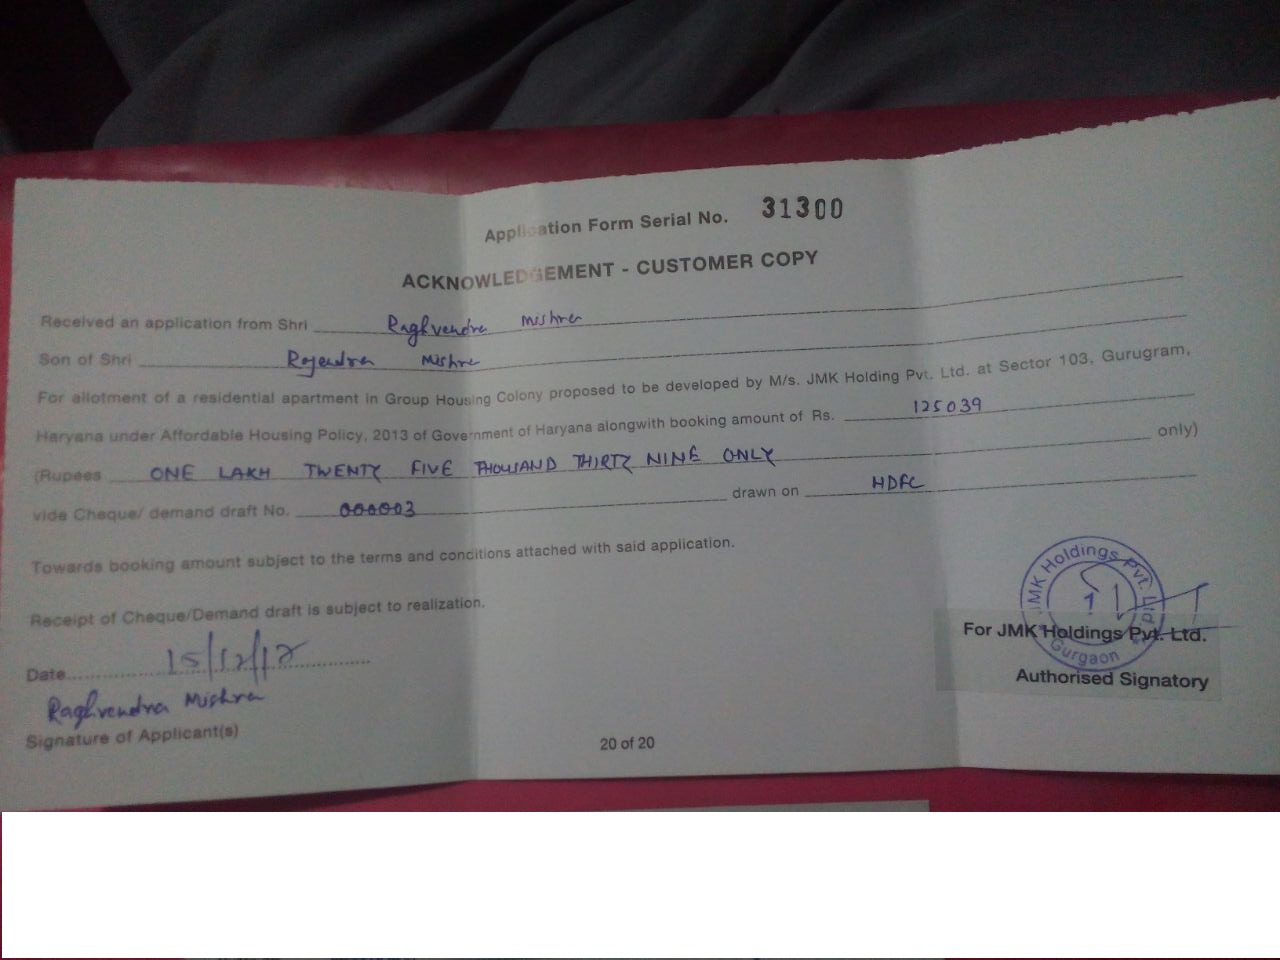 Application Form Serial No. 31300
ACKNOWLEDGEMENT - CUSTOMER COPY
Received an application from Shri Raghvendra Mishra
Son of Shri Rajendra Mishra
For allotment of a residential apartment in Group Housing Colony proposed to be developed by M/s. JMK Holding Pvt. Ltd. at Sector 103, Gurugram,
Haryana under Affordable Housing Policy, 2013 of Government of Haryana alongwith booking amount of Rs. 125039
(Rupees ONE LAKH TWENTY FIVE THOUSAND THIRTY NINE ONLY only)
vide Cheque/ demand draft No. 000003 drawn on HDFC
Towards booking amount subject to the terms and conditions attached with said application.
Receipt of Cheque/Demand draft is subject to realization.
JMK Holdings Pvt. Ltd. * Gurgaon *
1
For JMK Holdings Pvt. Ltd.
Date 15/12/17
Authorised Signatory
Raghvendra Mishra
Signature of Applicant(s)
20 of 20